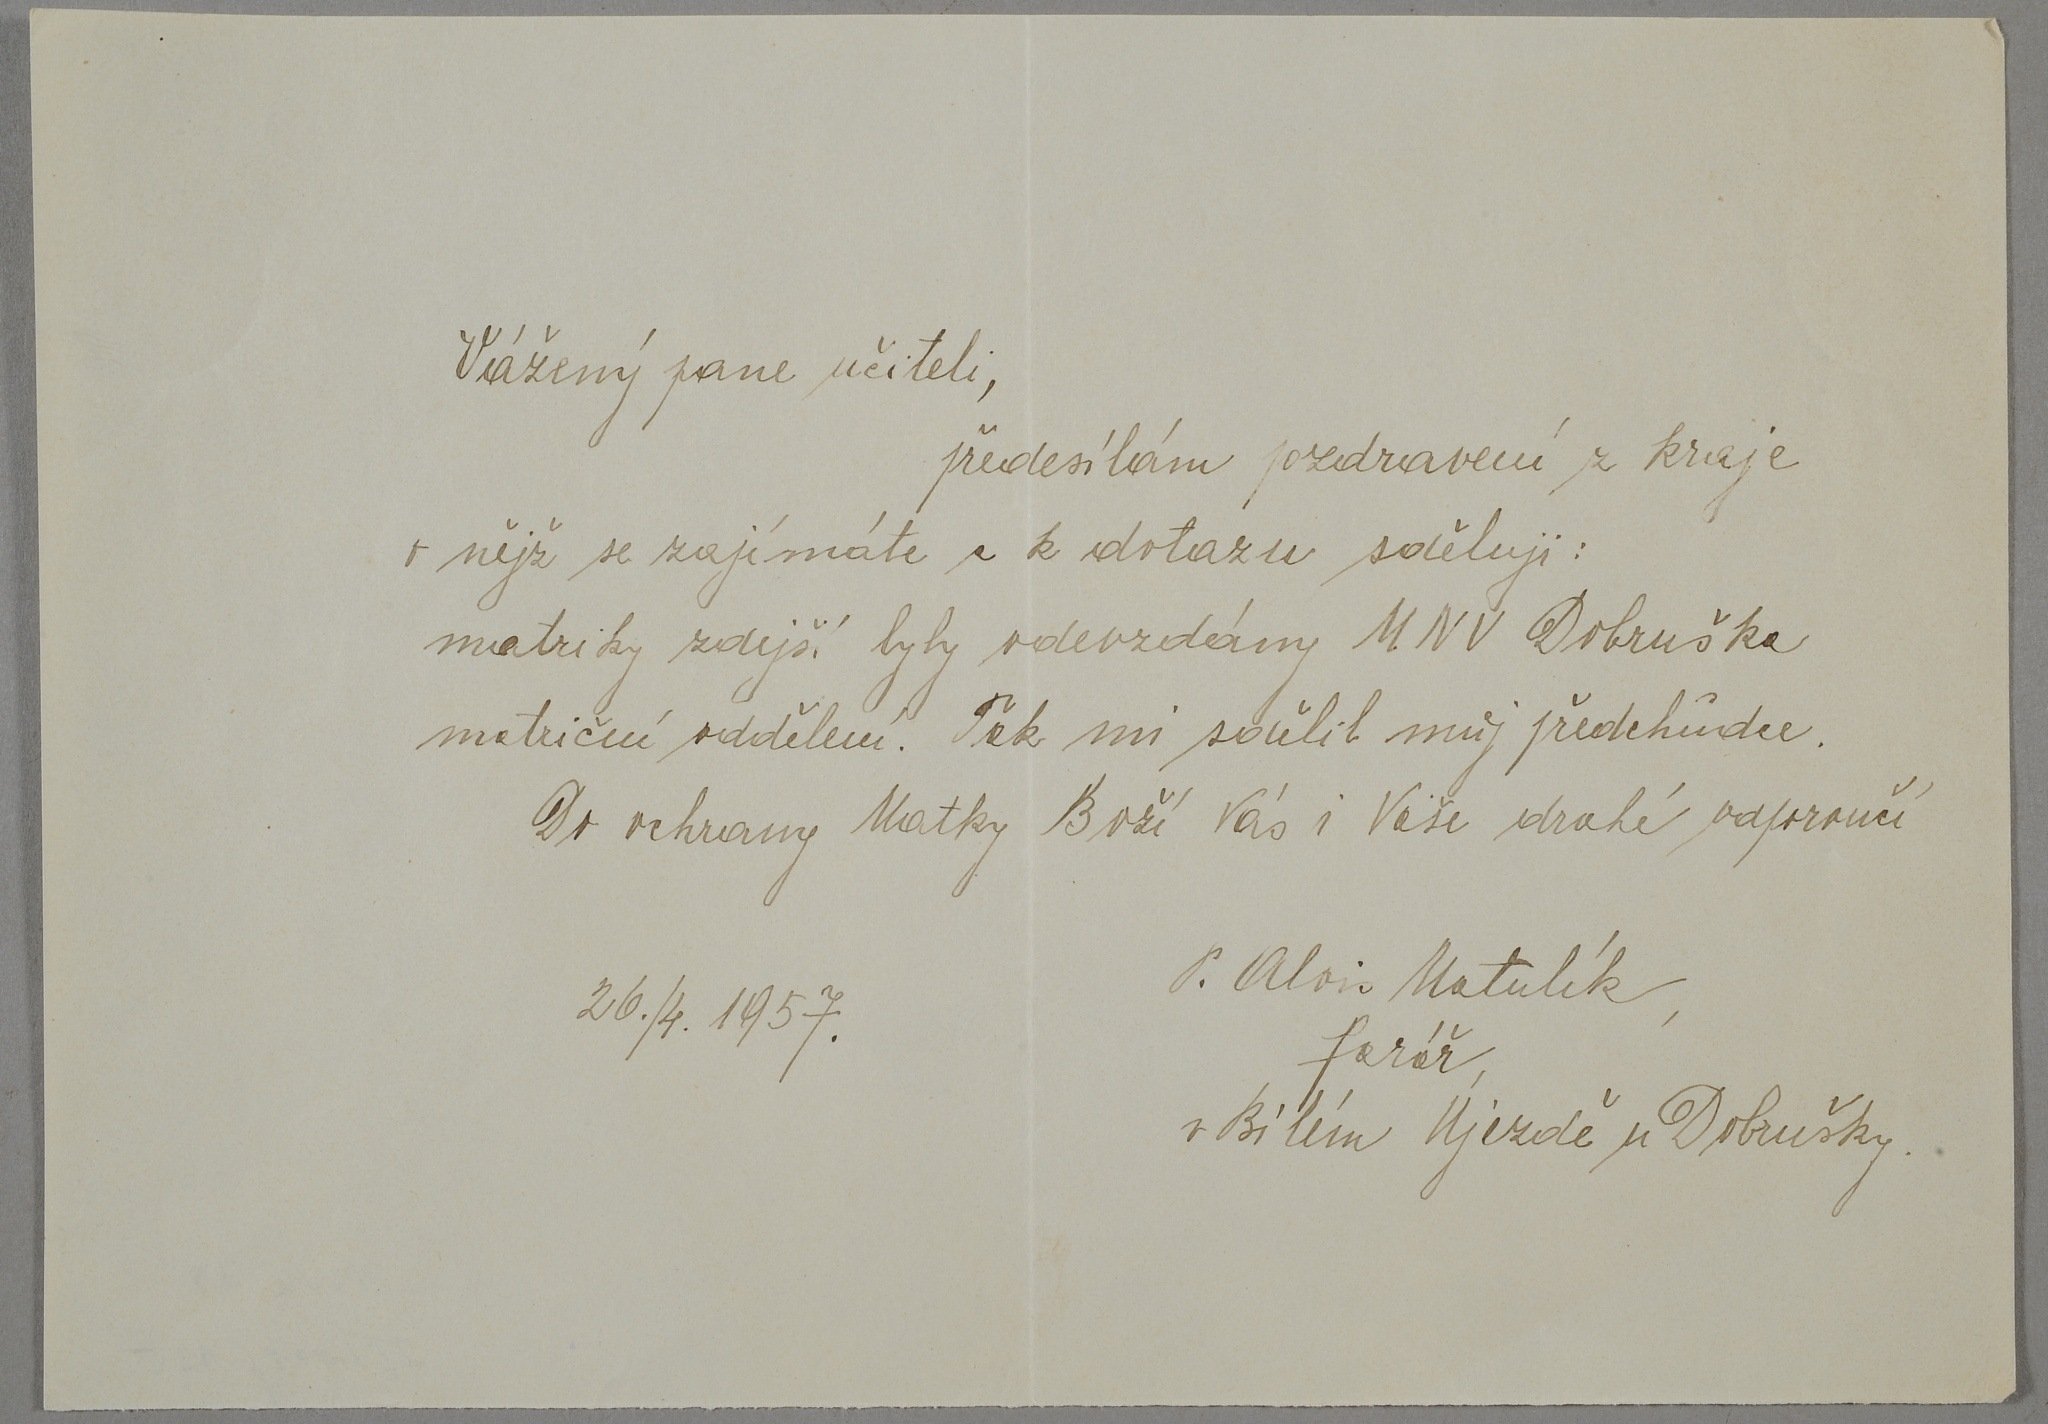 Vážený pane učiteli,
předesílám pozdravení z kraje
o nějž se zajímáte a k dotazu sděluji:
matriky zdejší byly odevzdány MNV Dobruška
matriční oddělení. Tak mi sdělil můj předchůdce.
Do ochrany Matky Boží Vás i Vaše drahé odporoučí
P. Alois Matulík,
farář,
26./4. 1957.
v Bílém Újezdě u Dobrušky.